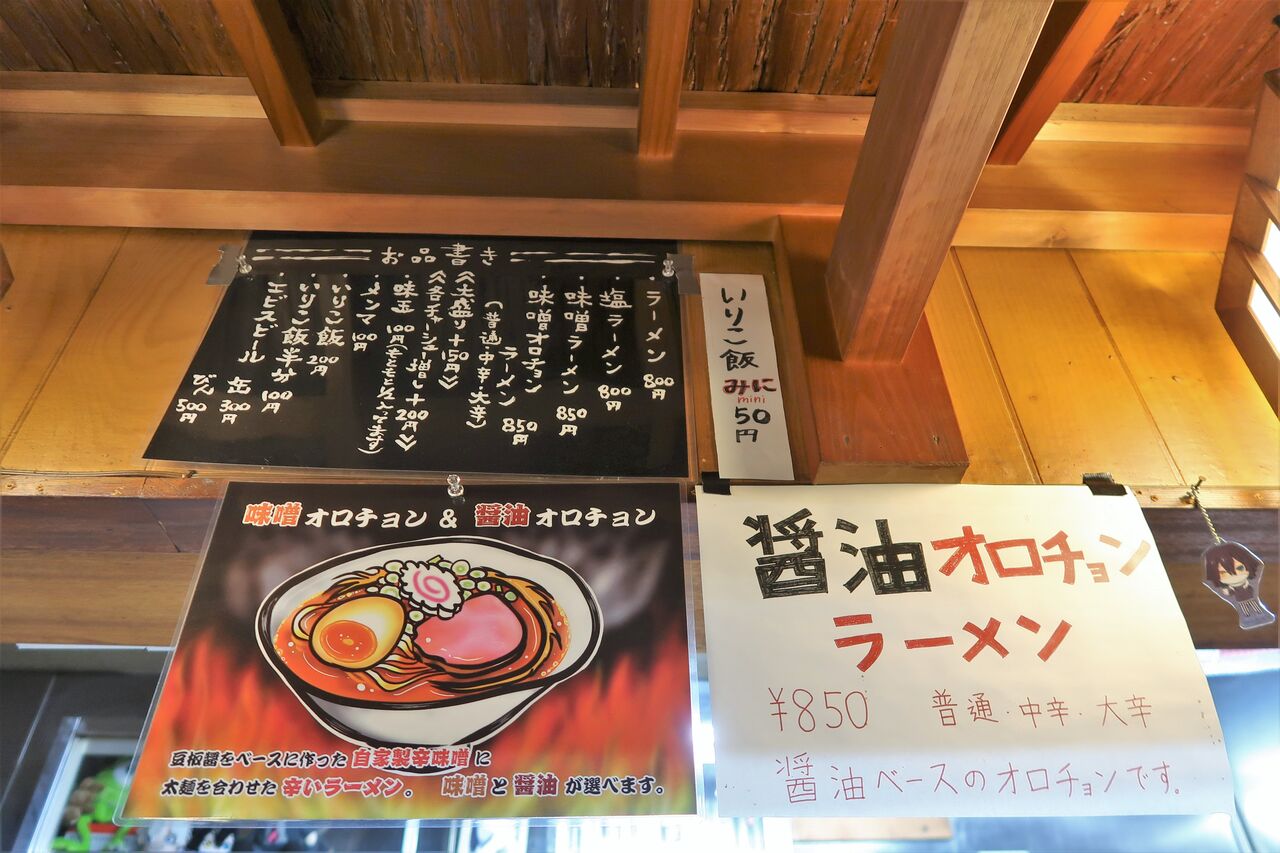 お品書き
・ラーメン 800円
塩ラーメン 800円
・味噌ラーメン 850円
・味噌オロチョン
ラーメン 850円
(普通・中辛・大辛)
《大盛り+150円》
《各チャーシュー増し+200円》
・味玉 100円(もともと1/2入ってます)
・メンマ 100円
・いりこ飯 200円
・いりこ飯半分 100円
・エビスビール 缶 300円
びん 500円
いりこ飯
みに
mini
50円
味噌オロチョン & 醤油オロチョン
豆板醤をベースに作った自家製辛味噌に
太麺を合わせた辛いラーメン。 味噌と醤油が選べます。
醤油オロチョン
ラーメン
¥850 普通・中辛・大辛
醤油ベースのオロチョンです。